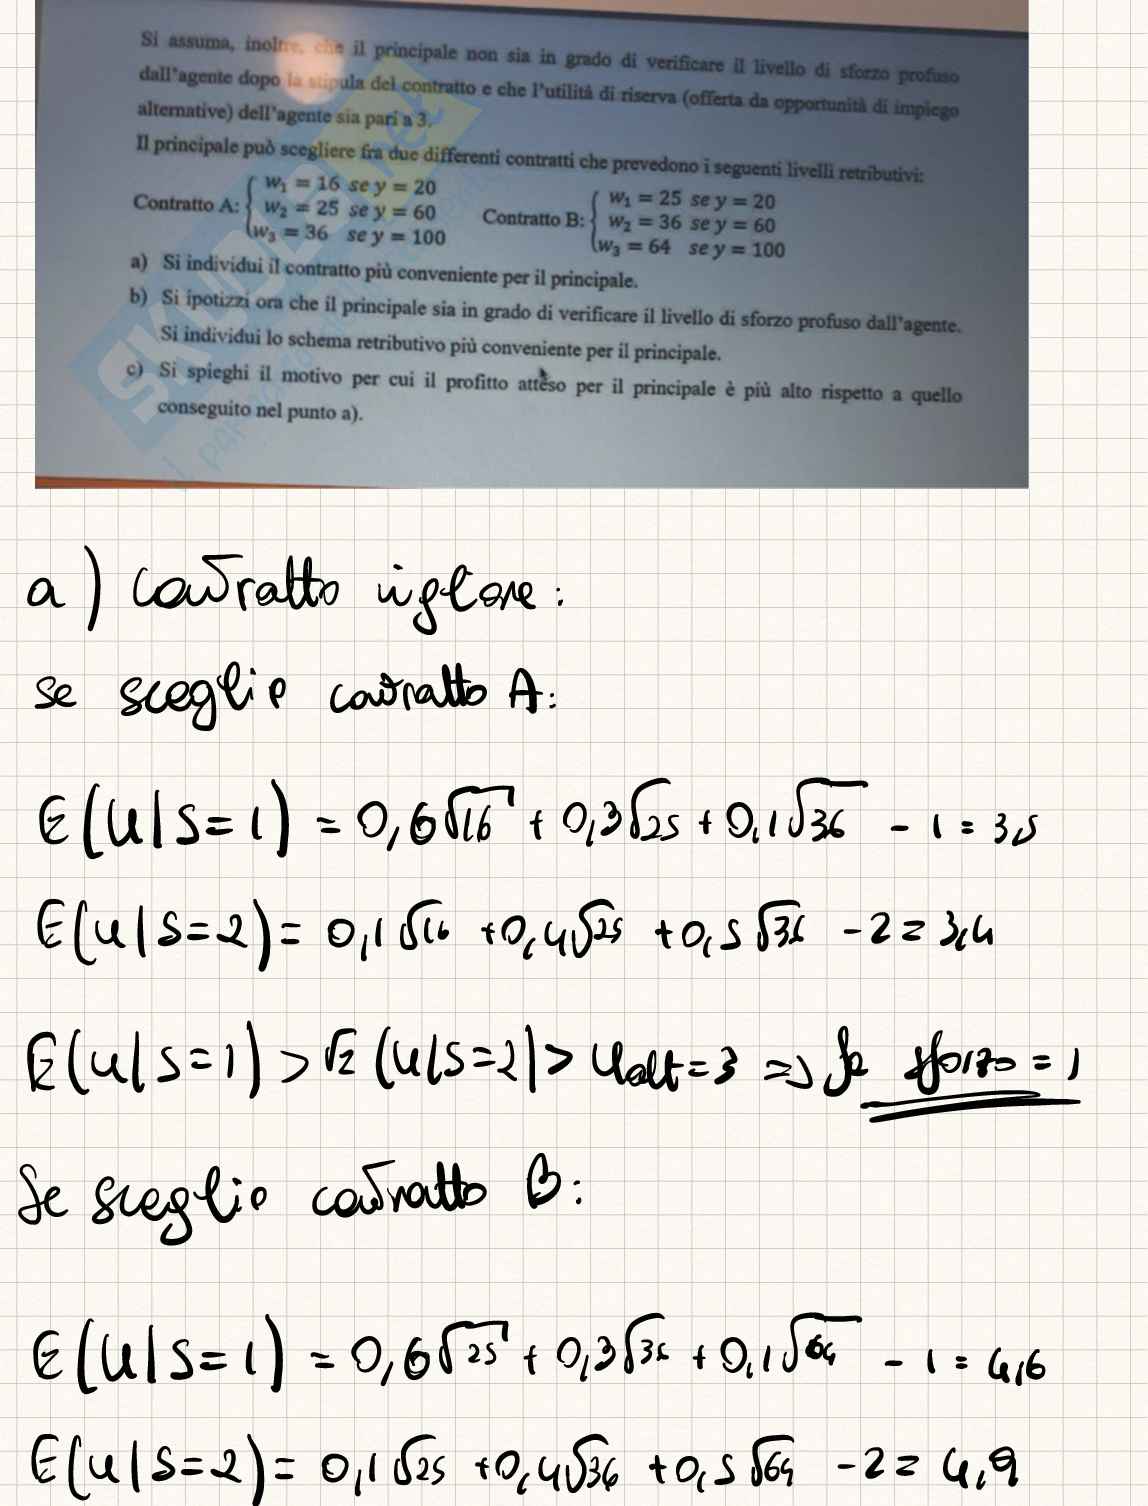 Si assuma, inoltre, che il principale non sia in grado di verificare il livello di sforzo profuso
dall'agente dopo la stipula del contratto e che l'utilità di riserva (offerta da opportunità di impiego
alternative) dell'agente sia pari a 3.
Il principale può scegliere fra due differenti contratti che prevedono i seguenti livelli retributivi:
Contratto A: { w₁ = 16 se y = 20
w₂ = 25 se y = 60
w₃ = 36 se y = 100
Contratto B: { w₁ = 25 se y = 20
w₂ = 36 se y = 60
w₃ = 64 se y = 100
a) Si individui il contratto più conveniente per il principale.
b) Si ipotizzi ora che il principale sia in grado di verificare il livello di sforzo profuso dall'agente.
Si individui lo schema retributivo più conveniente per il principale.
c) Si spieghi il motivo per cui il profitto atteso per il principale è più alto rispetto a quello
conseguito nel punto a).
a) contratto
se sceglie contratto A:
E(u|s=1) = 0,6√16 + 0,3√25 + 0,1√36 - 1 = 3,5
E(u|s=2) = 0,1√16 + 0,4√25 + 0,5√36 - 2 = 3,4
E(u|s=1) > (u|s=2) > ualt = 3 => sforzo = 1
Se sceglie contratto B:
E(u|s=1) = 0,6√25 + 0,3√36 + 0,1√64 - 1 = 4,6
E(u|s=2) = 0,1√25 + 0,4√36 + 0,5√64 - 2 = 4,9